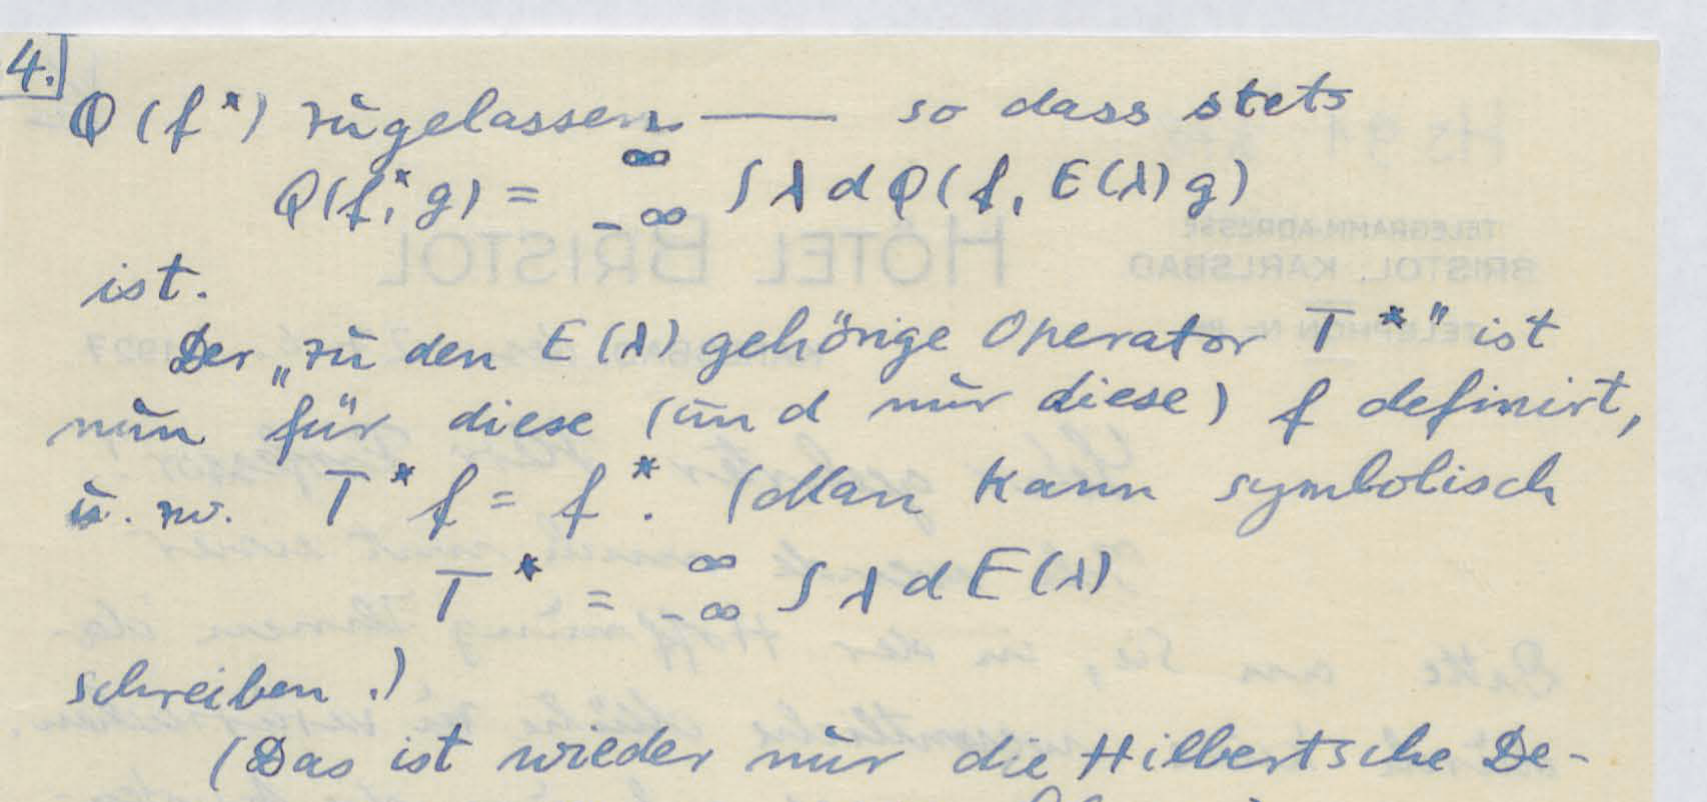 4.
Q(f*) zugelassen —— so dass stets
Q(f*, g) = ₋∞^∞ ∫ λ d Q(f, E(λ) g)
ist.
Der „zu den E(λ) gehörige Operator T*" ist
nun für diese (und nur diese) f definirt,
u. zw. T* f = f*. (Man kann symbolisch
T* = ₋∞^∞ ∫ λ d E(λ)
schreiben.)
(Das ist wieder nur die Hilbertsche De-
HÔTEL BRISTOL
TELEGRAMM-ADRESSE
BRISTOL, KARLSBAD
1927